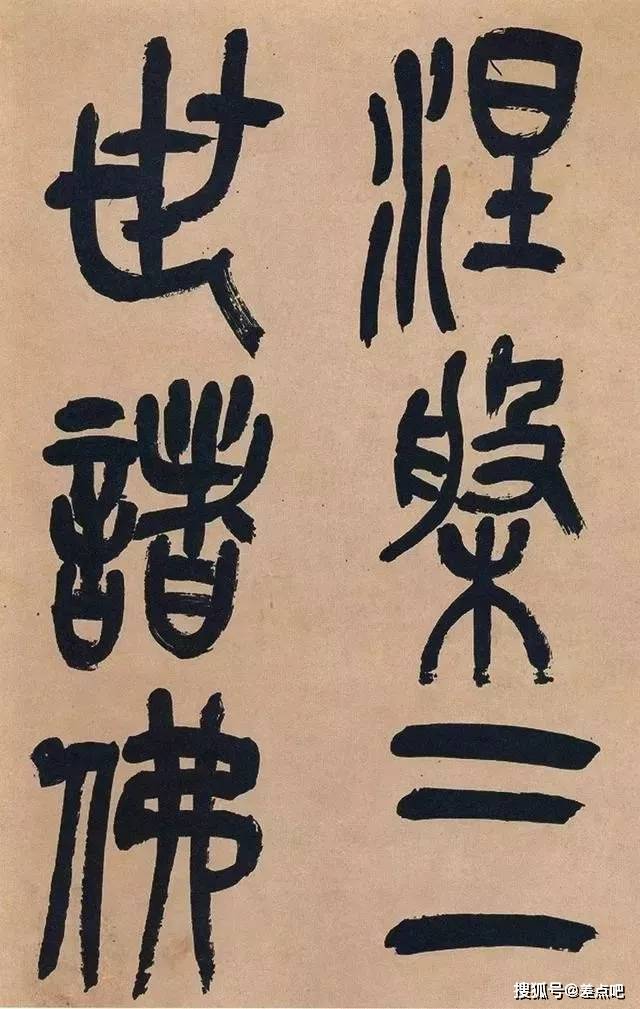 涅槃三
世諸佛
搜狐号@差点吧